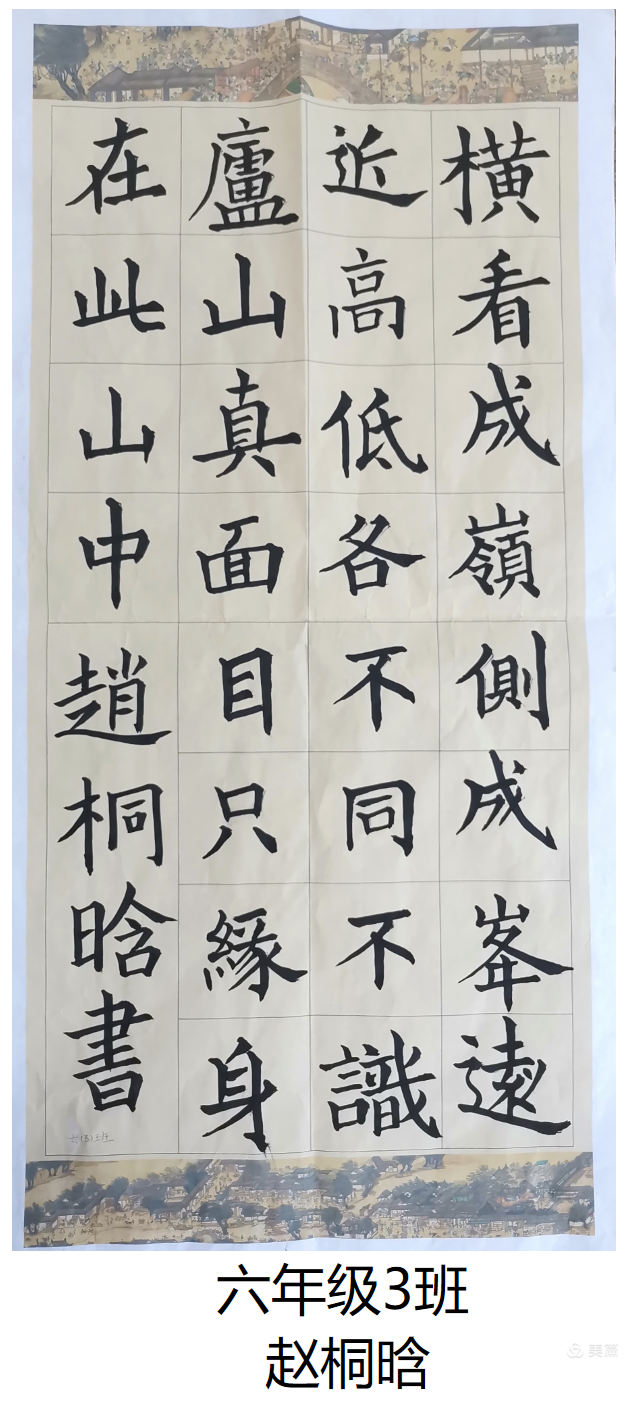 橫看成嶺側成峯遠
近高低各不同不識
廬山真面目只緣身
在此山中趙桐晗書
六(3)班
六年级3班
赵桐晗
美篇